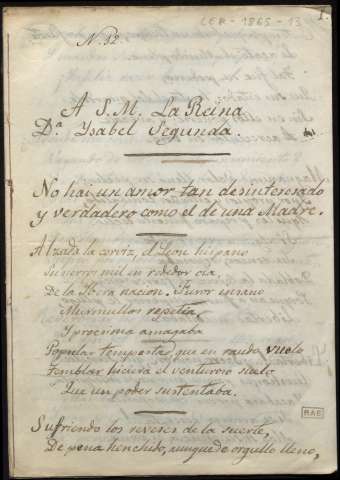 CER-1865-13
1.
N. 32
A S. M. La Reina
D.ª Ysabel Segunda.
No hai un amor tan desinteresado
y verdadero como el de una Madre.
Alzada la cerviz, el Leon hispano
Sin cuento mil en rededor oia,
De la Ybera nacion. Furor insano
Murmullos repetia,
Y procsima amagaba
Popular tempestad, que en raudo vuelo
Temblar hiciera el venturoso suelo
Que un poder sustentaba.
Sufriendo los reveses de la suerte,
De pena henchido, aunque de orgullo lleno,
RAE